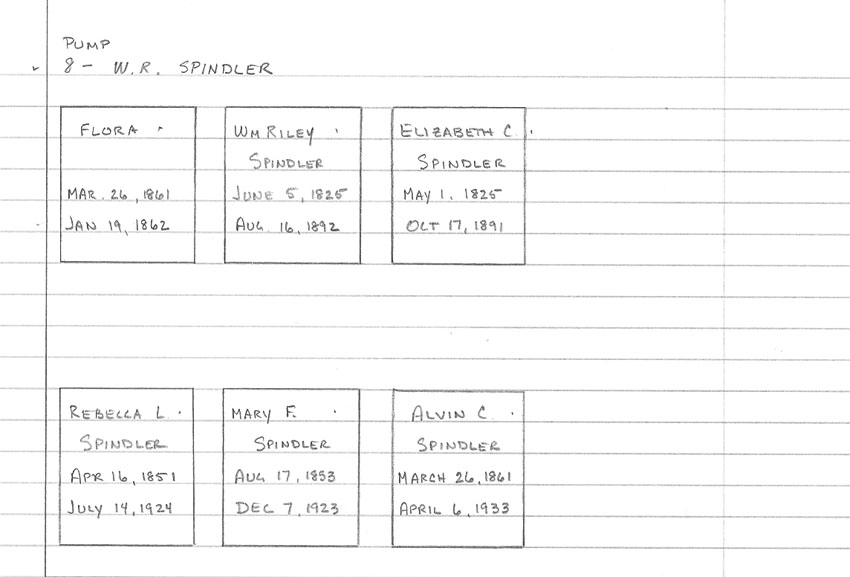 PUMP
8 - W.R. SPINDLER
FLORA
MAR. 26, 1861
JAN 19, 1862
WM RILEY
SPINDLER
JUNE 5, 1825
AUG 16, 1892
ELIZABETH C.
SPINDLER
MAY 1, 1825
OCT 17, 1891
REBELLA L.
SPINDLER
APR 16, 1851
JULY 14, 1924
MARY F.
SPINDLER
AUG 17, 1853
DEC 7, 1923
ALVIN C.
SPINDLER
MARCH 26, 1861
APRIL 6, 1933